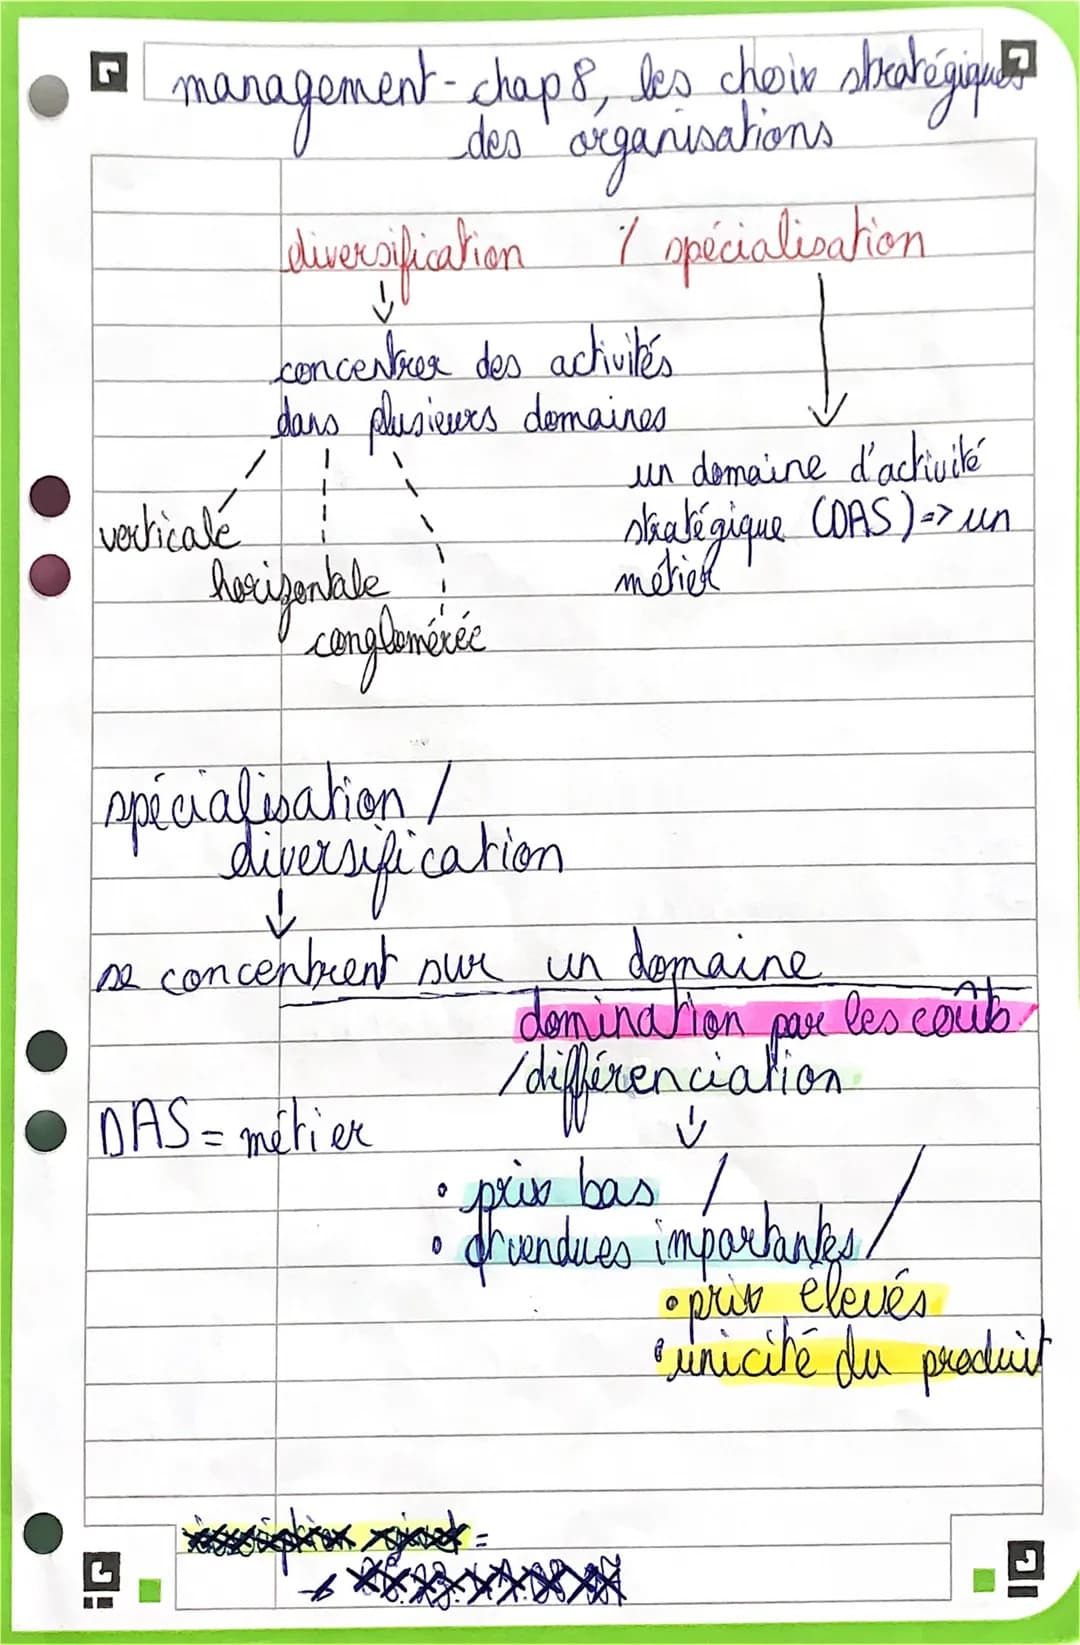 management - chap 8, les choix stratégiques
des organisations
diversification / spécialisation
concentrer des activités
dans plusieurs domaines
un domaine d'activité
stratégique (DAS) => un
métier
verticale
horizontale
conglomérée
spécialisation /
diversification
se concentrent sur un domaine
domination par les coûts
/ différenciation
DAS = métier
• prix bas /
• vendues importantes /
• prix élevés
• unicité du produit